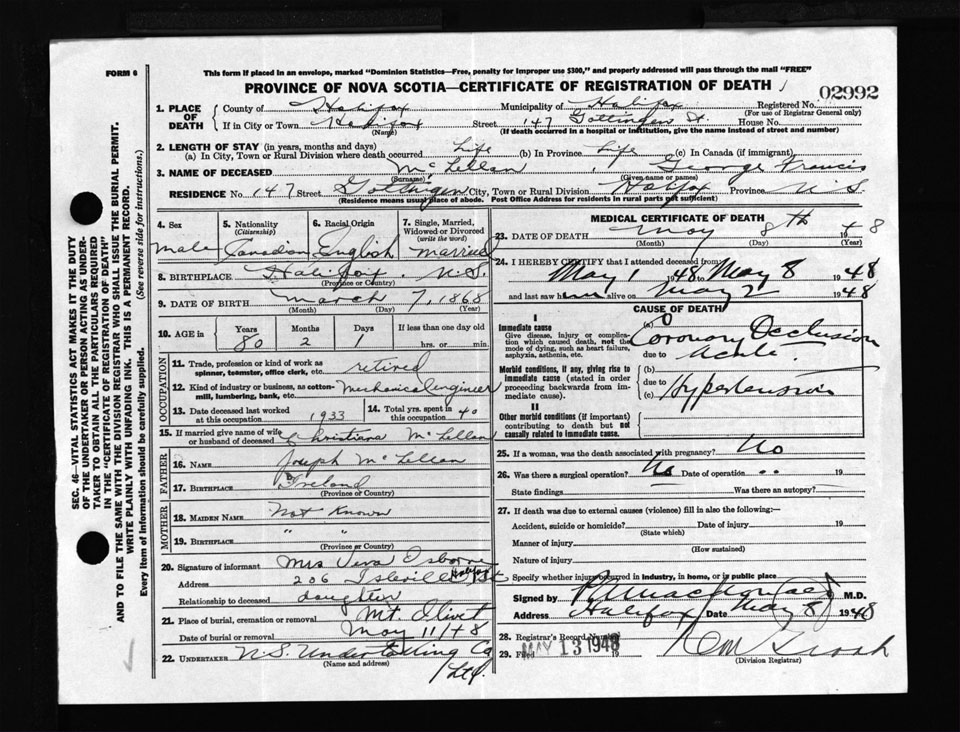 FORM 6
This form if placed in an envelope, marked "Dominion Statistics—Free, penalty for improper use $300," and properly addressed will pass through the mail "FREE"
PROVINCE OF NOVA SCOTIA—CERTIFICATE OF REGISTRATION OF DEATH
02992
SEC. 46—VITAL STATISTICS ACT MAKES IT THE DUTY
OF THE UNDERTAKER OR PERSON ACTING AS UNDER-
TAKER TO OBTAIN ALL THE PARTICULARS REQUIRED
IN THE "CERTIFICATE OF REGISTRATION OF DEATH"
AND TO FILE THE SAME WITH THE DIVISION REGISTRAR WHO SHALL ISSUE THE BURIAL PERMIT.
WRITE PLAINLY WITH UNFADING INK. THIS IS A PERMANENT RECORD.
Every item of information should be carefully supplied. (See reverse side for instructions.)
1. PLACE OF DEATH County of Halifax Municipality of Halifax Registered No.
(For use of Registrar General only)
If in City or Town Halifax Street 147 Gottingen St. House No.
(Name) (If death occurred in a hospital or institution, give the name instead of street and number)
2. LENGTH OF STAY (in years, months and days)
(a) In City, Town or Rural Division where death occurred Life (b) In Province Life (c) In Canada (if immigrant)
3. NAME OF DECEASED McLellan, George Francis
(Surname) (Given name or names)
RESIDENCE No. 147 Street Gottingen City, Town or Rural Division Halifax Province N.S.
(Residence means usual place of abode. Post Office Address for residents in rural parts not sufficient)
4. Sex 5. Nationality (Citizenship) 6. Racial Origin 7. Single, Married, Widowed or Divorced (write the word)
Male Canadian English Married
8. BIRTHPLACE Halifax, N.S.
(Province or Country)
9. DATE OF BIRTH March 7, 1868
(Month) (Day) (Year)
10. AGE in Years Months Days If less than one day old
80 2 1 hrs. or min.
OCCUPATION
11. Trade, profession or kind of work as spinner, teamster, office clerk, etc. retired
12. Kind of industry or business, as cotton-mill, lumbering, bank, etc. Mechanical engineer
13. Date deceased last worked at this occupation 1933 14. Total yrs. spent in this occupation 40
15. If married give name of wife or husband of deceased Christiana McLellan
FATHER
16. NAME Joseph McLellan
17. BIRTHPLACE Ireland
(Province or Country)
MOTHER
18. MAIDEN NAME Not Known
19. BIRTHPLACE " "
(Province or Country)
20. Signature of informant Mrs Vera Osborne
Address 206 Isleville St Halifax
Relationship to deceased daughter
21. Place of burial, cremation or removal Mt. Olivet
Date of burial or removal May 11/48
22. UNDERTAKER N.S. Undertaking Co Ltd.
(Name and address)
MEDICAL CERTIFICATE OF DEATH
23. DATE OF DEATH May 8th 1948
(Month) (Day) (Year)
24. I HEREBY CERTIFY that I attended deceased from
May 1 1948 to May 8 1948
and last saw him alive on May 2 1948
CAUSE OF DEATH
I
Immediate cause
Give disease, injury or complication which caused death, not the mode of dying, such as heart failure, asphyxia, asthenia, etc.
(a) Coronary Occlusion
due to Acute
Morbid conditions, if any, giving rise to immediate cause (stated in order proceeding backwards from immediate cause).
(b)
due to
(c) Hypertension
II
Other morbid conditions (if important) contributing to death but not causally related to immediate cause.
25. If a woman, was the death associated with pregnancy? No
26. Was there a surgical operation? No Date of operation .. 19
State findings Was there an autopsy?
27. If death was due to external causes (violence) fill in also the following:—
Accident, suicide or homicide? Date of injury 19
(State which)
Manner of injury
(How sustained)
Nature of injury
Specify whether injury occurred in industry, in home, or in public place
Signed by M.D.
Address Halifax Date May 8 1948
28. Registrar's Record Number
29. Filed MAY 13 1948
(Division Registrar)